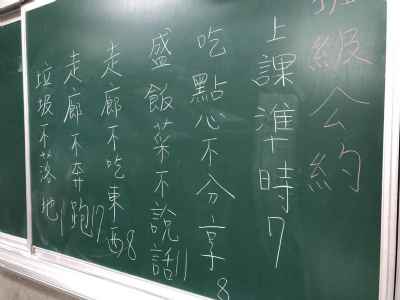 班級公約
上課準時7
吃點心不分享8
盛飯菜不說話11
走廊不吃東西8
走廊不奔跑17
垃圾不落地1